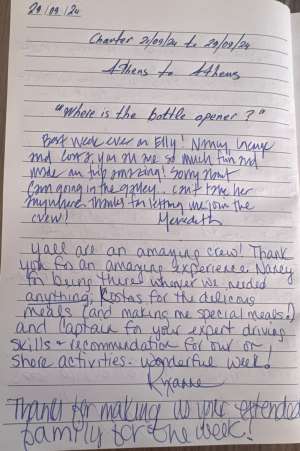 29/09/24
Charter 21/09/24 to 29/09/24
Athens to Athens
"Where is the bottle opener?"
Best week ever on Elly! Nancy,
and you all are so much fun and
made our trip amazing! Sorry about
Cam going in the galley... can't take her
anywhere. Thanks for letting me join the
crew! Meredith
Yall are an amazing crew! Thank
you for an amazing experience. Nancy
for being there whenever we needed
anything, Kostas for the delicious
meals (and making me special meals!)
and Captain for your expert driving
skills + recommendation for our on
shore activities. Wonderful week!
Roxanne
Thanks for making us your extended
family for the week!